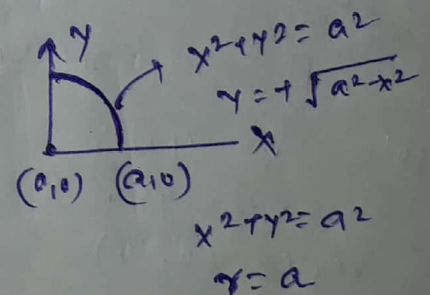 y
x² + y² = a²
y = + √a² - x²
x
(0,0) (a,0)
x² + y² = a²
r = a